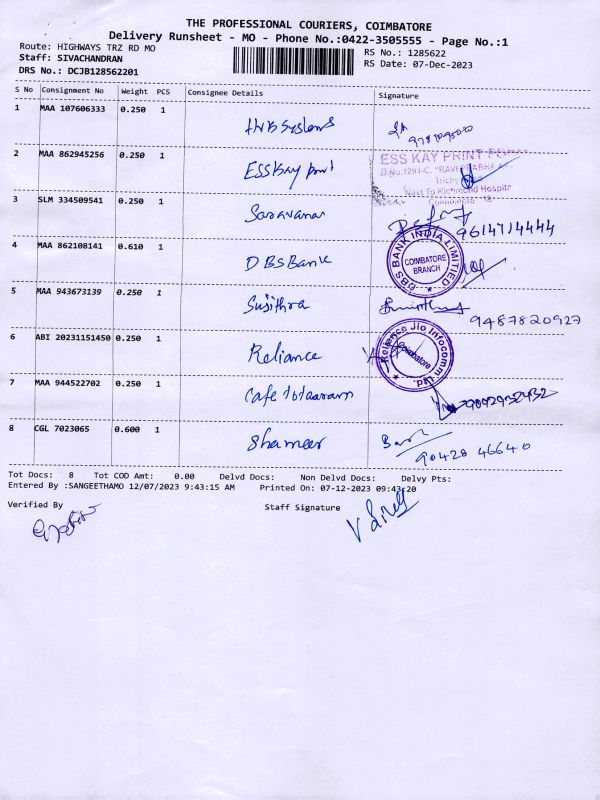 THE PROFESSIONAL COURIERS, COIMBATORE
Delivery Runsheet - MO - Phone No.:0422-3505555 - Page No.:1
Route: HIGHWAYS TRZ RD MO
RS No.: 1285622
Staff: SIVACHANDRAN
RS Date: 07-Dec-2023
DRS No.: DCJB128562201
S No Consignment No Weight PCS Consignee Details Signature
1 MAA 107606333 0.250 1 HNB Systems
2 MAA 862945256 0.250 1 ESSKay print
ESS KAY PRINT
D.No.1291-C, "RAVI PRABHA
Trichy
West To Richmond Hospital
Coimbatore - 18
3 SLM 334509541 0.250 1 Saravanan 9614714444
4 MAA 862108141 0.610 1 DBS Bank
DBS BANK INDIA LIMITED
COIMBATORE
BRANCH
5 MAA 943673139 0.250 1 Sujithra
9487820927
6 ABI 20231151450 0.250 1 Reliance
Reliance Jio Infocomm Ltd.
Coimbatore
7 MAA 944522702 0.250 1 Cafe
8 CGL 7023065 0.600 1 Shameer
90428 46640
Tot Docs: 8 Tot COD Amt: 0.00 Delvd Docs: Non Delvd Docs: Delvy Pts:
Entered By :SANGEETHAMO 12/07/2023 9:43:15 AM Printed On: 07-12-2023 09:43:20
Verified By Staff Signature